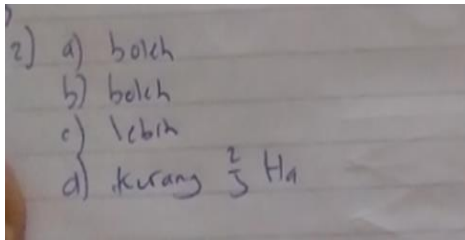 2) a) boleh
b) boleh
c) lebih
d) kurang 2/5 Ha